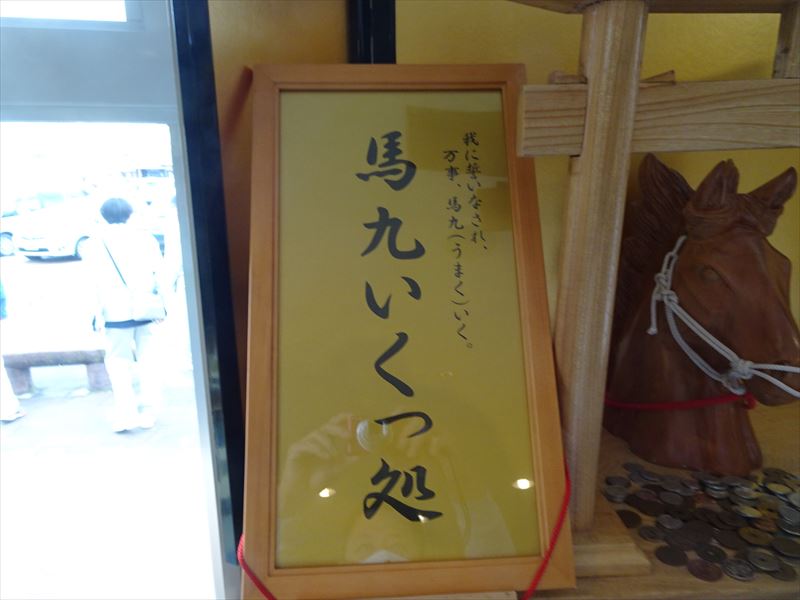 我に誓いなされ、
万事、馬九(うまく)いく。
馬九いくっ処